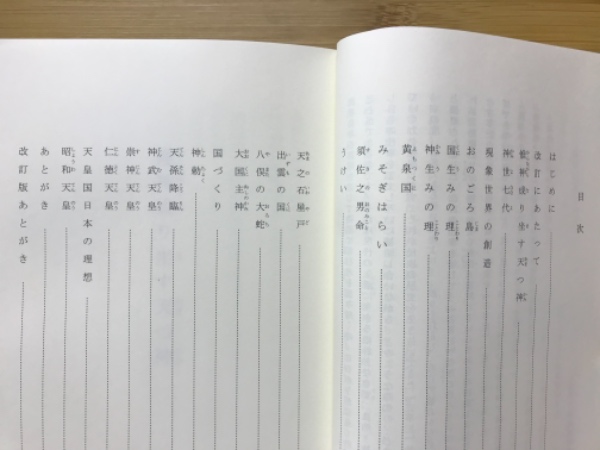 目次
はじめに
改訂にあたって
神世七代
現象世界の創造
おのごろ島
国生みの理
神生みの理
黄泉国
みそぎはらい
須佐之男命
うけい
天之石屋戸
出雲の国
八俣の大蛇
大国主神
国づくり
神勅
天孫降臨
神武天皇
崇神天皇
仁徳天皇
天皇国日本の理想
昭和天皇
あとがき
改訂版あとがき